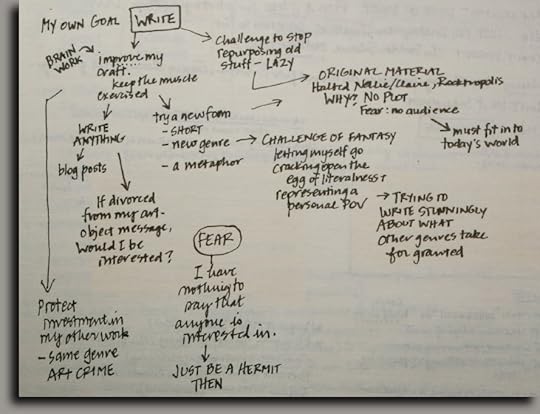 MY OWN GOAL
WRITE
BRAIN
WORK
improve my
craft...
keep the muscle
exercised
Challenge to stop
repurposing old
stuff - LAZY
ORIGINAL MATERIAL
Halted Nellie/Claire, Rocktropolis
WHY? NO PLOT
Fear: no audience
must fit in to
today's world
try a new form
- SHORT
- new genre
- a metaphor
WRITE
ANYTHING
blog posts
If divorced
from my art-
object message,
would I be
interested?
CHALLENGE OF FANTASY
letting myself go
cracking open the
egg of literalness +
representing a
personal POV
TRYING TO
WRITE STUNNINGLY
ABOUT WHAT
other genres take
for granted
FEAR
I have
nothing to
say that
anyone is
interested in.
JUST BE A HERMIT
THEN
Protect
investment in
my other work
- same genre
ART CRIME